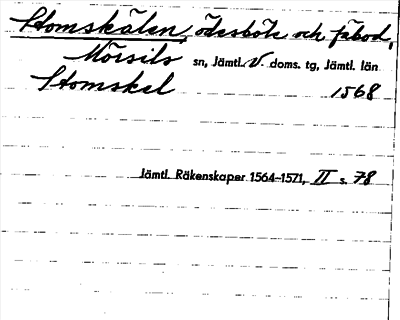 Stomskälen, ödesböle och fäbod,
Mörsils sn, Jämtl. V. doms. tg, Jämtl. län
Stomskel 1568
Jämtl. Räkenskaper 1564-1571, II s. 78